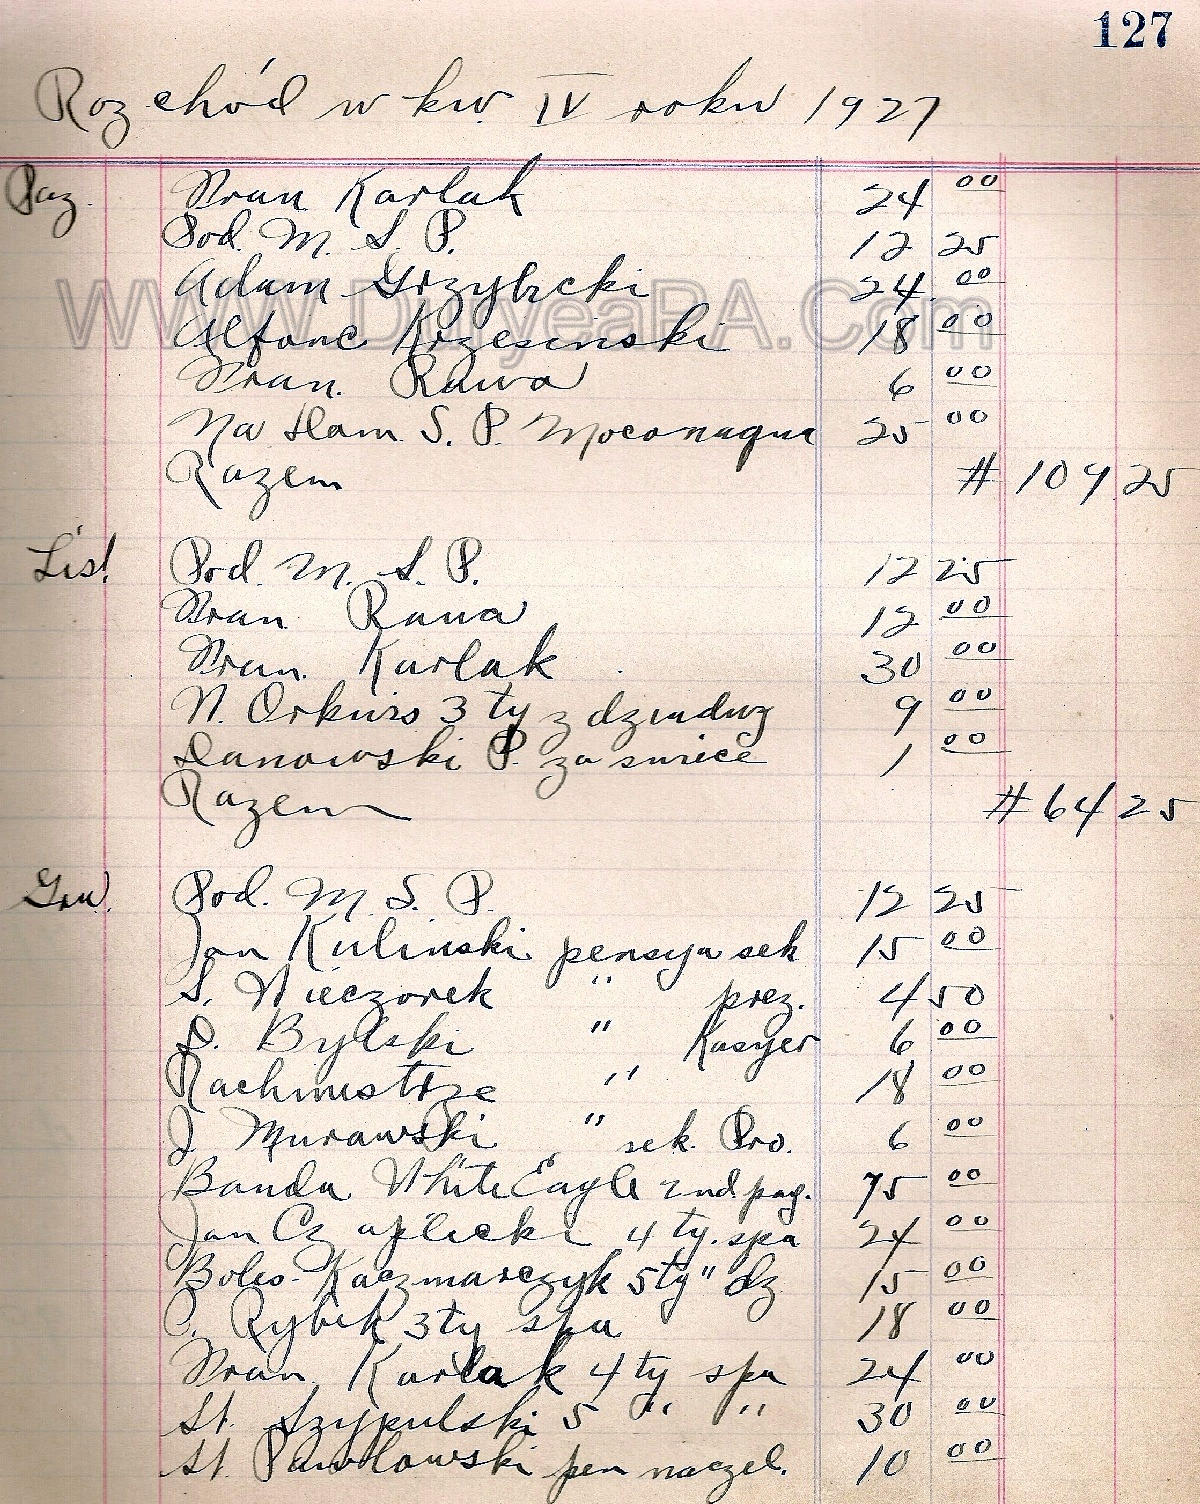 127
Rozchód w kw. IV roku 1927
Paz. Fran Karlak 24 00
Pod. M. S. P. 12 25
Adam Grzybicki 24 00
www.DuryeaPA.Com
Alfonc Krzesinski 18 00
Fran. Rawa 6 00
Na Dom S. P. Moconaqua 25 00
Razem # 109 25
List. Pod. M. S. P. 12 25
Fran Rawa 12 00
Fran. Karlak 30 00
N. Orkwis 3 ty z 9 00
Danowski P. za 1 00
Razem # 64 25
Gru. Pod. M. S. P. 12 25
Jan Kulinski pensya sek 15 00
S. Wieczorek " prez. 4 50
P. Bylski " Kasyer 6 00
Rachmistrze " 18 00
J. Murawski " sek. Pro. 6 00
Banda White Eagle 2nd pay. 75 00
Jan Czaplicki 4 ty. spa 24 00
Boles. Kaczmarczyk 5 ty " dz 15 00
Rybik 3 ty spa 18 00
Fran. Karlak 4 ty spa 24 00
St. Szypulski 5 " " 30 00
St. Pawlowski pen naczel. 10 00